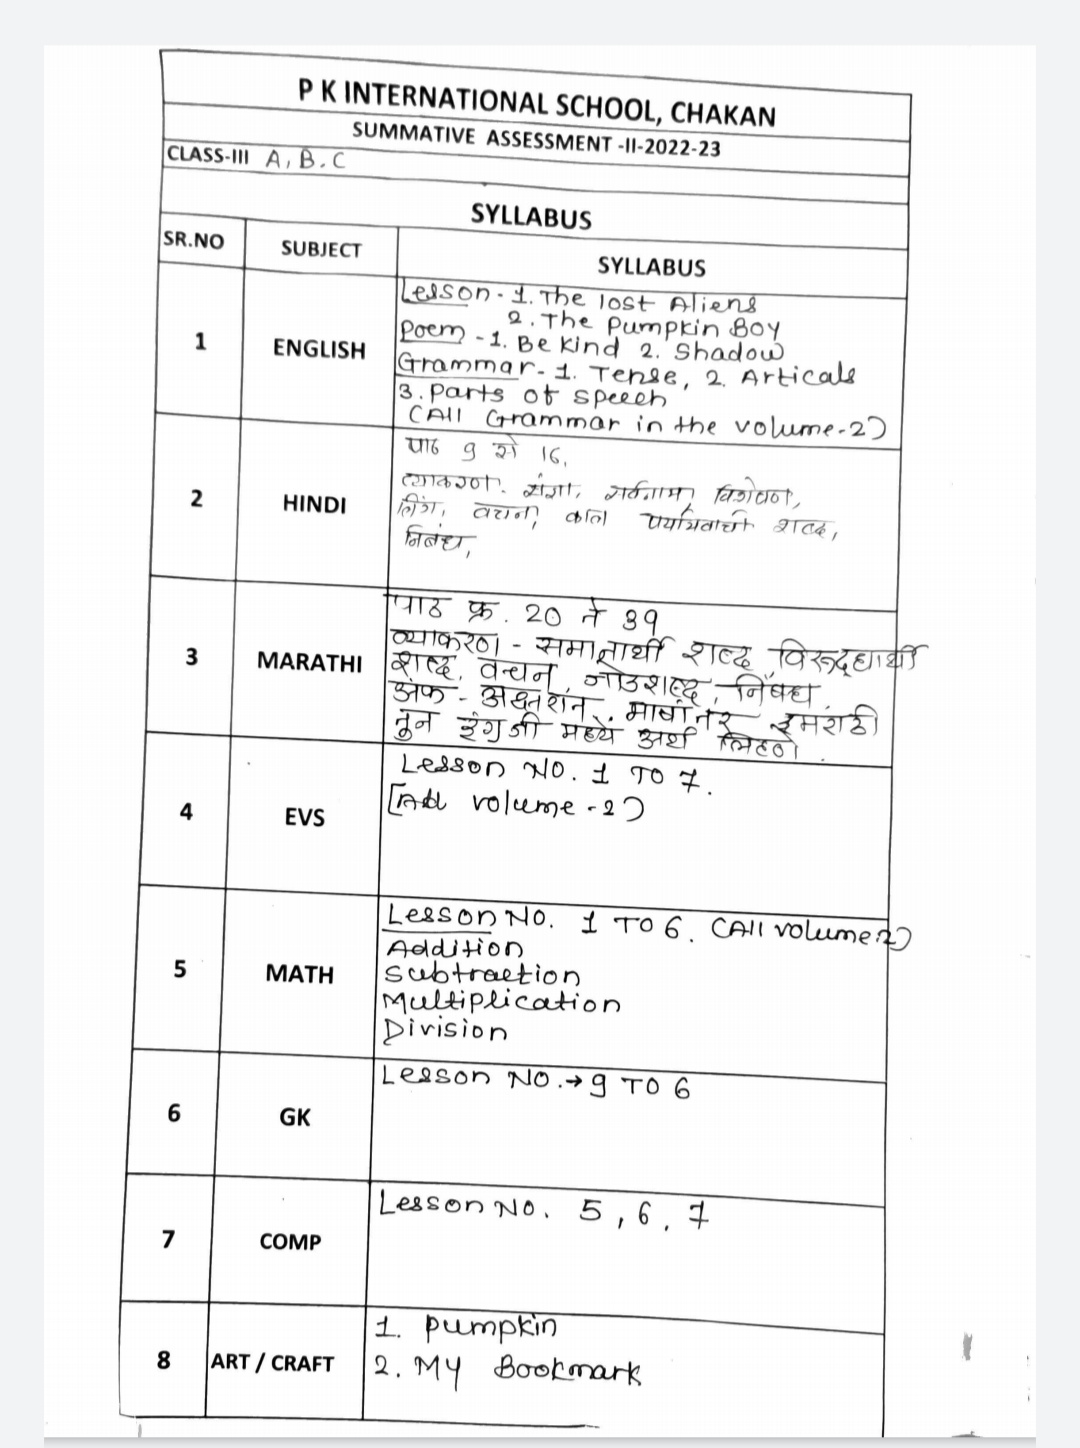 P K INTERNATIONAL SCHOOL, CHAKAN
SUMMATIVE ASSESSMENT -II-2022-23
CLASS-III A, B. C
SYLLABUS
SR.NO SUBJECT SYLLABUS
1 ENGLISH
Lesson - 1. The lost Aliens
2. The Pumpkin Boy
Poem - 1. Be Kind 2. Shadow
Grammar - 1. Tense, 2. Articals
3. Parts of speech
(All Grammar in the volume-2)
2 HINDI
पाठ 9 से 16,
व्याकरण. संज्ञा, सर्वनाम, विशेषण,
लिंग, वचन, काल पर्यायवाची शब्द,
निबंध,
3 MARATHI
पाठ क्र. 20 ते 39
व्याकरण - समानार्थी शब्द, विरूद्धार्थी
शब्द, वचन, जोडशब्द, निबंध,
अंक - अक्षरात.
तुन इंग्रजी मध्ये अर्थ लिहणे.
4 EVS
Lesson No. 1 TO 7.
[All volume - 2)
5 MATH
Lesson No. 1 TO 6. (All volume-2)
Addition
Subtraction
Multiplication
Division
6 GK
Lesson No.→ 9 TO 6
7 COMP
Lesson No. 5, 6, 7
8 ART / CRAFT
1. pumpkin
2. My Bookmark